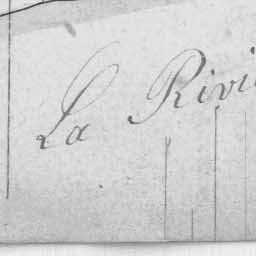 La Rivi